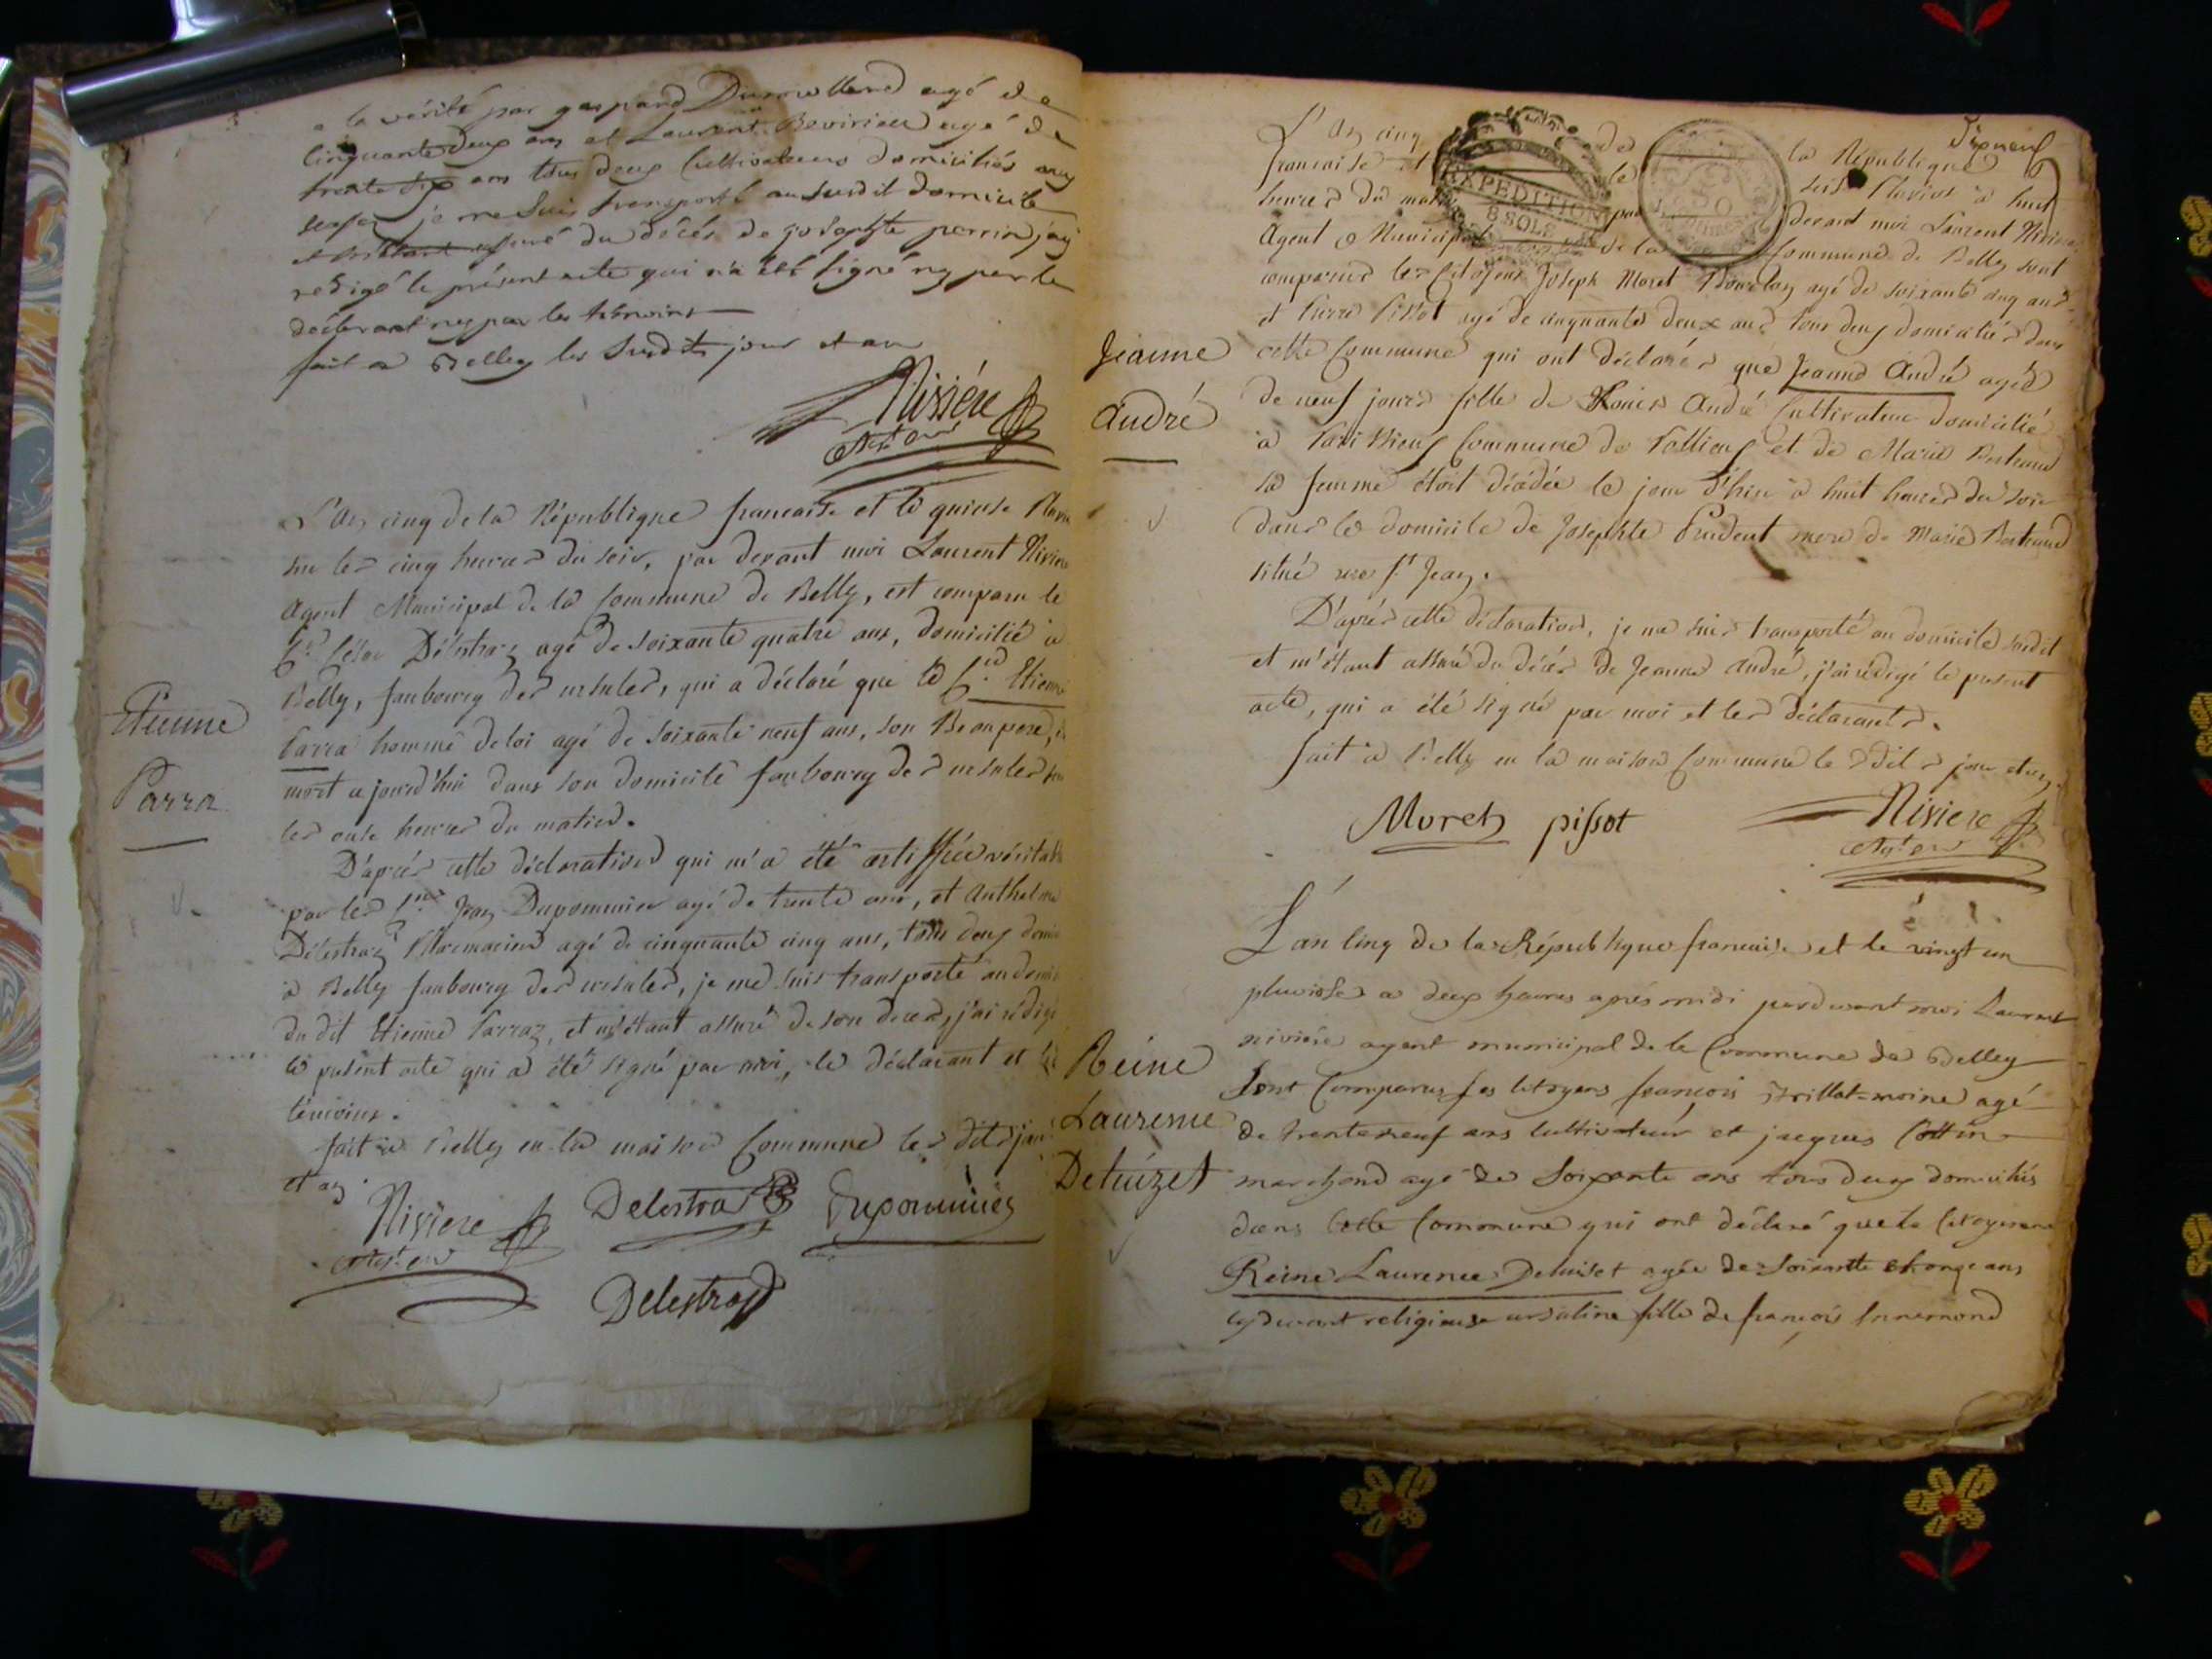 a la vérité par gaspard Dumollard agé de
Cinquante deux ans et Laurent Bevirieu agé de
trente six ans tous deux Cultivateurs domiciliés au
je me suis transporté au susdit domicile
assuré du décés de josephte perrin j'ay
redigé le présent acte qui n'a été signé ny par le
déclarant ny par les témoins
fait a Belley les Susdits jour et an
Nivière
Agt.
L'An cinq de la République francaise et le quinse Pluvi
sur les cinq heures du soir, par devant moi Laurent Nivière
Agent Municipal de la Commune de Belly, est comparu le
C.en César Délestraz agé de soixante quatre ans, domicilié à
Belly, faubourg des ursules, qui a déclaré que le C.en Etienne
Parra homme de loi agé de soixante neuf ans, son Beaupere, est
mort ajourd'hui dans son domicile faubourg des ursules sur
les onse heures du matin.
Etienne
Parra
D'après cette déclaration qui m'a été certiffiée véritable
par les C.ens Jean Dupommier agé de trente ans, et Anthelme
Délestraz Pharmacien agé de cinquante cinq ans, tous deux domi
à Belly faubourg des ursules, je me suis transporté au domi
du dit Etienne Parraz, et m'étant assuré de son deces, j'ai rédigé
le présent acte qui a été signé par moi, le déclarant et les
témoins.
fait à Belly en la maison Commune les dits jour
et an.
Nivière Delestra Dupommier
Agt.
Delestraz
Dixneuf
L'An cinq de la République
francaise et le seise Pluviose à huit
heures du matin par devant moi Laurent Nivière
EXPEDITION
8 SOLS
Agent Municipal de la Commune de Belly sont
comparus les Citoyens Joseph Moret Bourelier agé de soixante cinq ans
et Pierre Pissot agé de cinquante deux ans tous deux domiciliés dans
cette Commune qui ont déclarés que Jeanne André agée
de neuf jours fille de Louis André Cultivateur domicilié
à Commune de Pollieu et de Marie Bertrand
sa femme étoit décédée le jour d'hier à huit heures du soir
dans le domicile de Josephte Prudent mere de Marie Bertrand
situé rue S.t Jean.
Jeanne
André
D'après cette déclaration, je me suis transporté au domicile susdit
et m'étant assuré du décés de Jeanne André, j'ai rédigé le présent
acte, qui a été signé par moi et les déclarants.
fait à Belly en la maison Commune les dits jour et an.
Moret pissot Niviere
Agt.
L'an Cinq de la République francaise et le vingt un
pluviose a deux heures aprés midi pardevant moi Laurent
niviére agent municipal de la Commune de Belley
Sont Comparus les Citoyens françois Trillat-moine agé
de trente neuf ans Cultivateur et jacques Cottin
marchand agé de Soixante ans tous deux domiciliés
dans Cette Commune qui ont déclaré que la Citoyenne
Reine Laurence Deluiset agée de soixante et onze ans
cydevant religieuse ursuline fille de françois Ennemond
Reine
Laurence
Deluizet